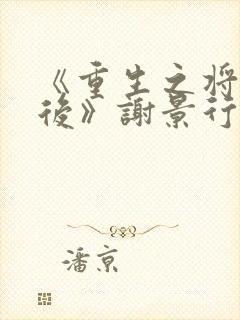 《重生之将
後》謝景行
潘京